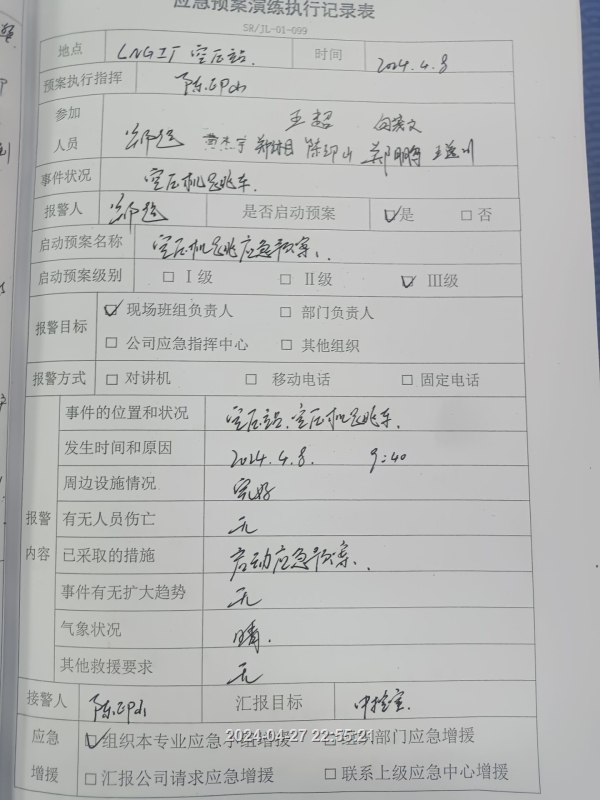 应急预案演练执行记录表
SR/JL-01-099
地点 LNG工厂 空压站. 时间 2024.4.8
预案执行指挥 陈印山
参加人员 王超
郑鹏
事件状况 空压机跳车.
报警人 是否启动预案 ☑是 □否
启动预案名称 空压机跳车应急预案.
启动预案级别 □Ⅰ级 □Ⅱ级 ☑Ⅲ级
报警目标 ☑现场班组负责人 □部门负责人
□公司应急指挥中心 □其他组织
报警方式 □对讲机 □移动电话 □固定电话
报警内容 事件的位置和状况 空压站.空压机跳车.
发生时间和原因 2024.4.8. 9:40
周边设施情况 完好
有无人员伤亡 无
已采取的措施 启动应急预案.
事件有无扩大趋势 无
气象状况 晴.
其他救援要求 无
接警人 陈印山 汇报目标 中控室.
2024-04-27 22:55:21
应急增援 ☑组织本专业应急小组增援 □组织部门应急增援
□汇报公司请求应急增援 □联系上级应急中心增援